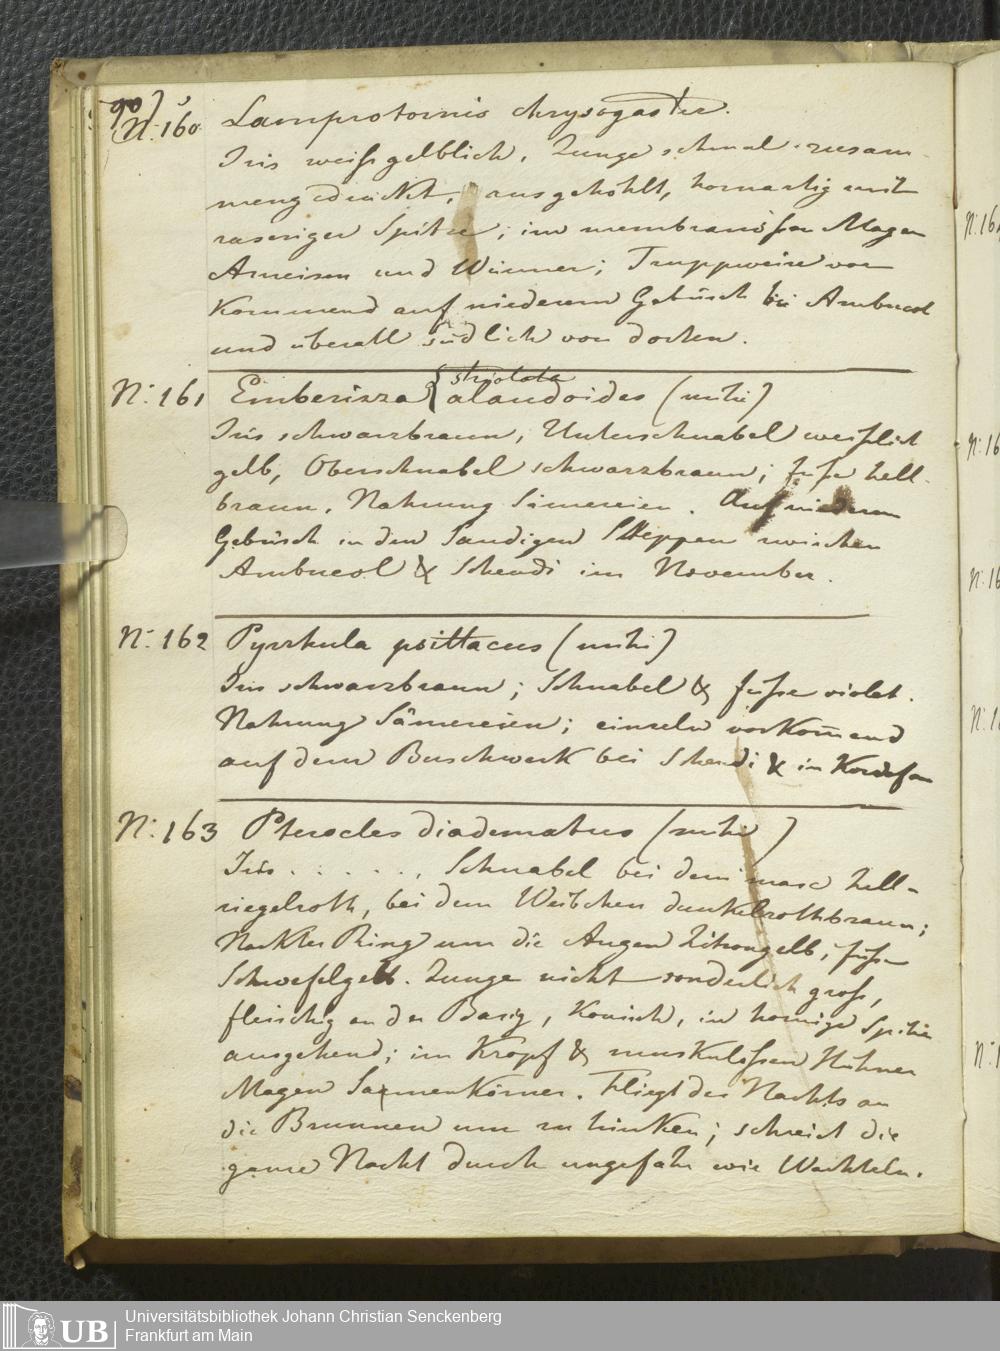 90)
N: 160 Lamprotornis chrysogaster.
Iris weißgelblich, Zunge schmal zusam-
mengedruckt, ausgehöhlt, hornartig mit
raseriger Spitze; im membranösen Magen
Ameisen und Würmer; Truppweise vor
Kommend auf niederem Gebüsch bei Ambucol
und überall südlich von dorten.
N: 161 Emberizza { striolata alaudoides (mihi)
Iris schwarzbraun, Unterschnabel weißlich
gelb, Oberschnabel schwarzbraun; füße hell-
braun. Nahrung Sämereien. Auf niederem
Gebüsch in den Sandigen Steppen zwischen
Ambucol & Schendi im November.
N: 162 Pyrrhula psittacus (mihi)
Iris schwarzbraun; Schnabel & füße violet.
Nahrung Sämereien; einzeln vorkom̄end
auf dem Buschwerk bei Schendi & in Kordofan
N: 163 Pterocles diadematus (mihi)
Iris . . . . . , Schnabel bei dem masc hell-
ziegelroth, bei dem Weibchen dunkelrothbraun;
Nackter Ring um die Augen Zitrongelb, füße
Schwefelgelb. Zunge nicht sonderlich groß,
fleischig an der Basis, Konisch, in hornige Spitze
ausgehend; im Kropf & muskulößen Hühner
Magen Saamenkörner. Fliegt des Nachts an
die Brunnen um zu trinken; schreit die
ganze Nacht durch ungefähr wie Wachteln.
N: 16
N: 16
N: 16
N: 1
N: 1
Universitätsbibliothek Johann Christian Senckenberg
UB Frankfurt am Main